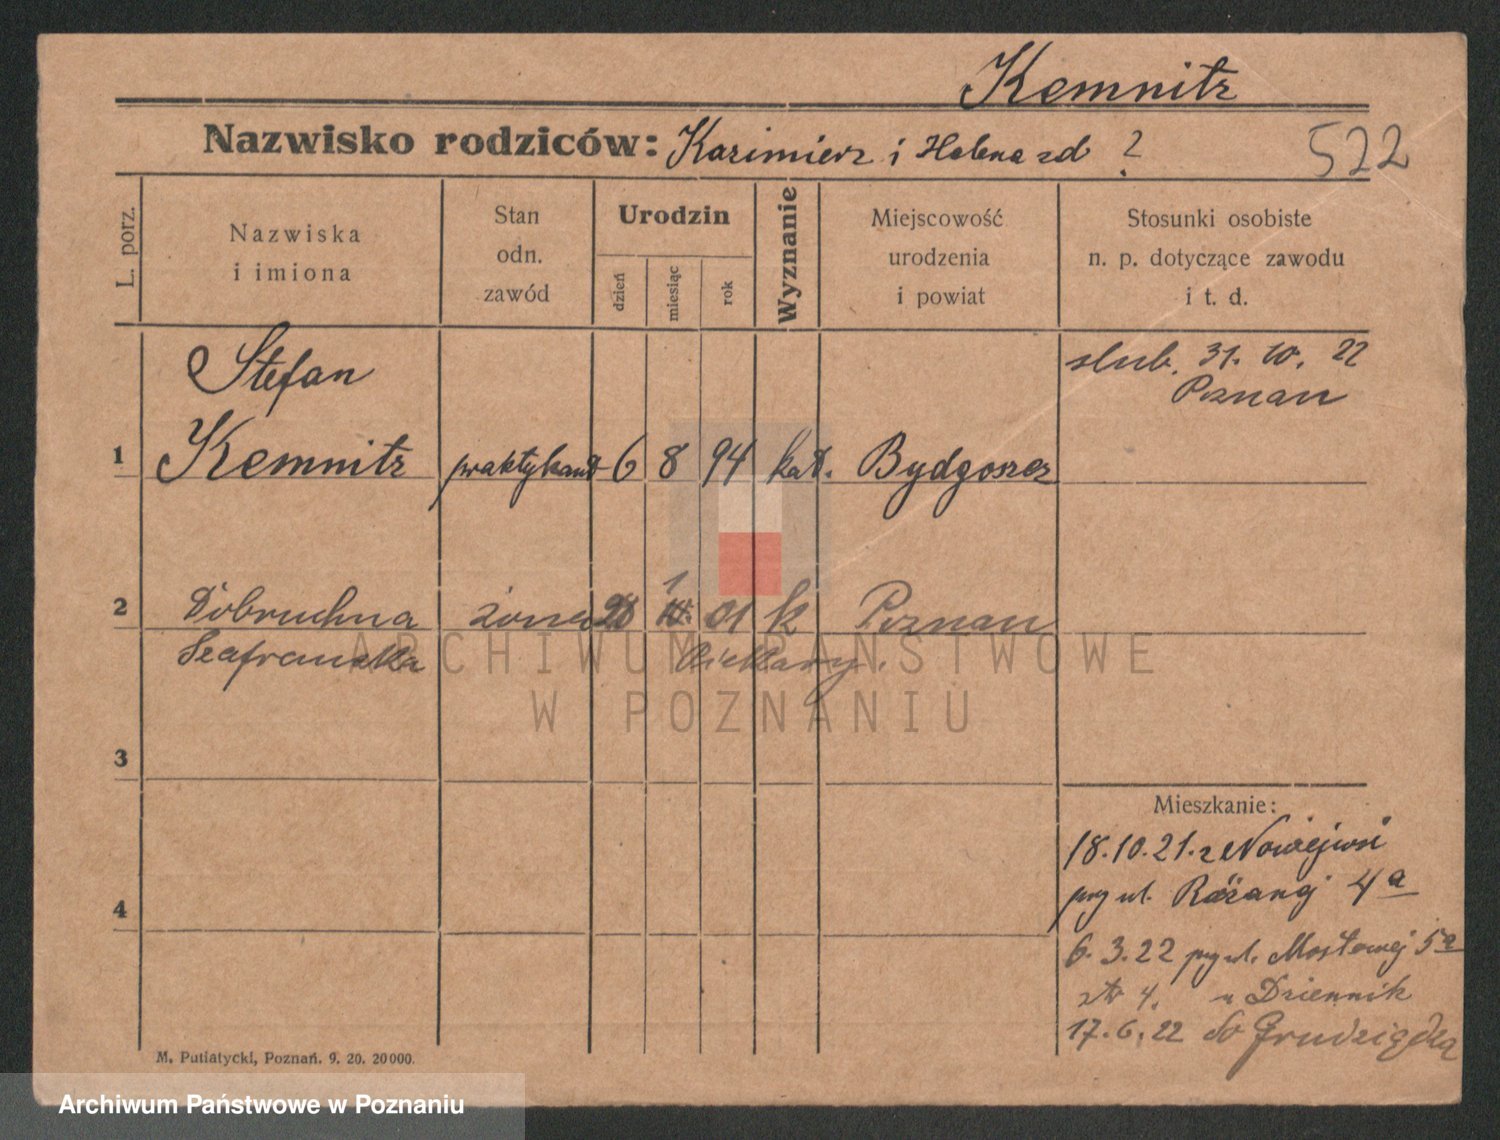 Kemnitz
Nazwisko rodziców: Kazimierz i Helena zd ?
522
L. porz.
Nazwiska
i imiona
Stan
odn.
zawód
Urodzin
dzień
miesiąc
rok
Wyznanie
Miejscowość
urodzenia
i powiat
Stosunki osobiste
n. p. dotyczące zawodu
i t. d.
ślub. 31. 10. 22
Poznan
Stefan
1 Kemnitz praktykant 6 8 94 kat. Bydgoszcz
1
2 Dobruchna żona 01 k Poznan
Szafranska
3
4
Mieszkanie:
18.10.21. z Nowejwsi
przy ul. Różanej 4a
6.3.22 przy ul. Mostowej 5a
4. u Dziennik
17.6.22 do Grudziądza
M. Putiatycki, Poznań. 9. 20. 20000.
ARCHIWUM PAŃSTWOWE
W POZNANIU
Archiwum Państwowe w Poznaniu